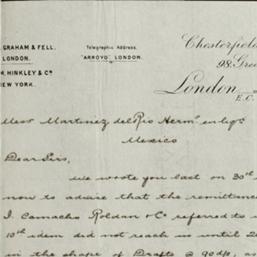 GRAHAM & FELL.
LONDON.
M, HINKLEY & Co
NEW YORK.
Telegraphic Address.
"ARROYO" LONDON.
Chesterfield
98, Gre
London
E.C.
Mess Martinez del Rio Hermo en liqn
Mexico
Dear Sirs,
We wrote you last on 30th
now to advise that the remittance
J. Camacho Roldan & Co referred to
10th idem did not reach us until 2
in the shape of Drafts @ 90 d/s, a